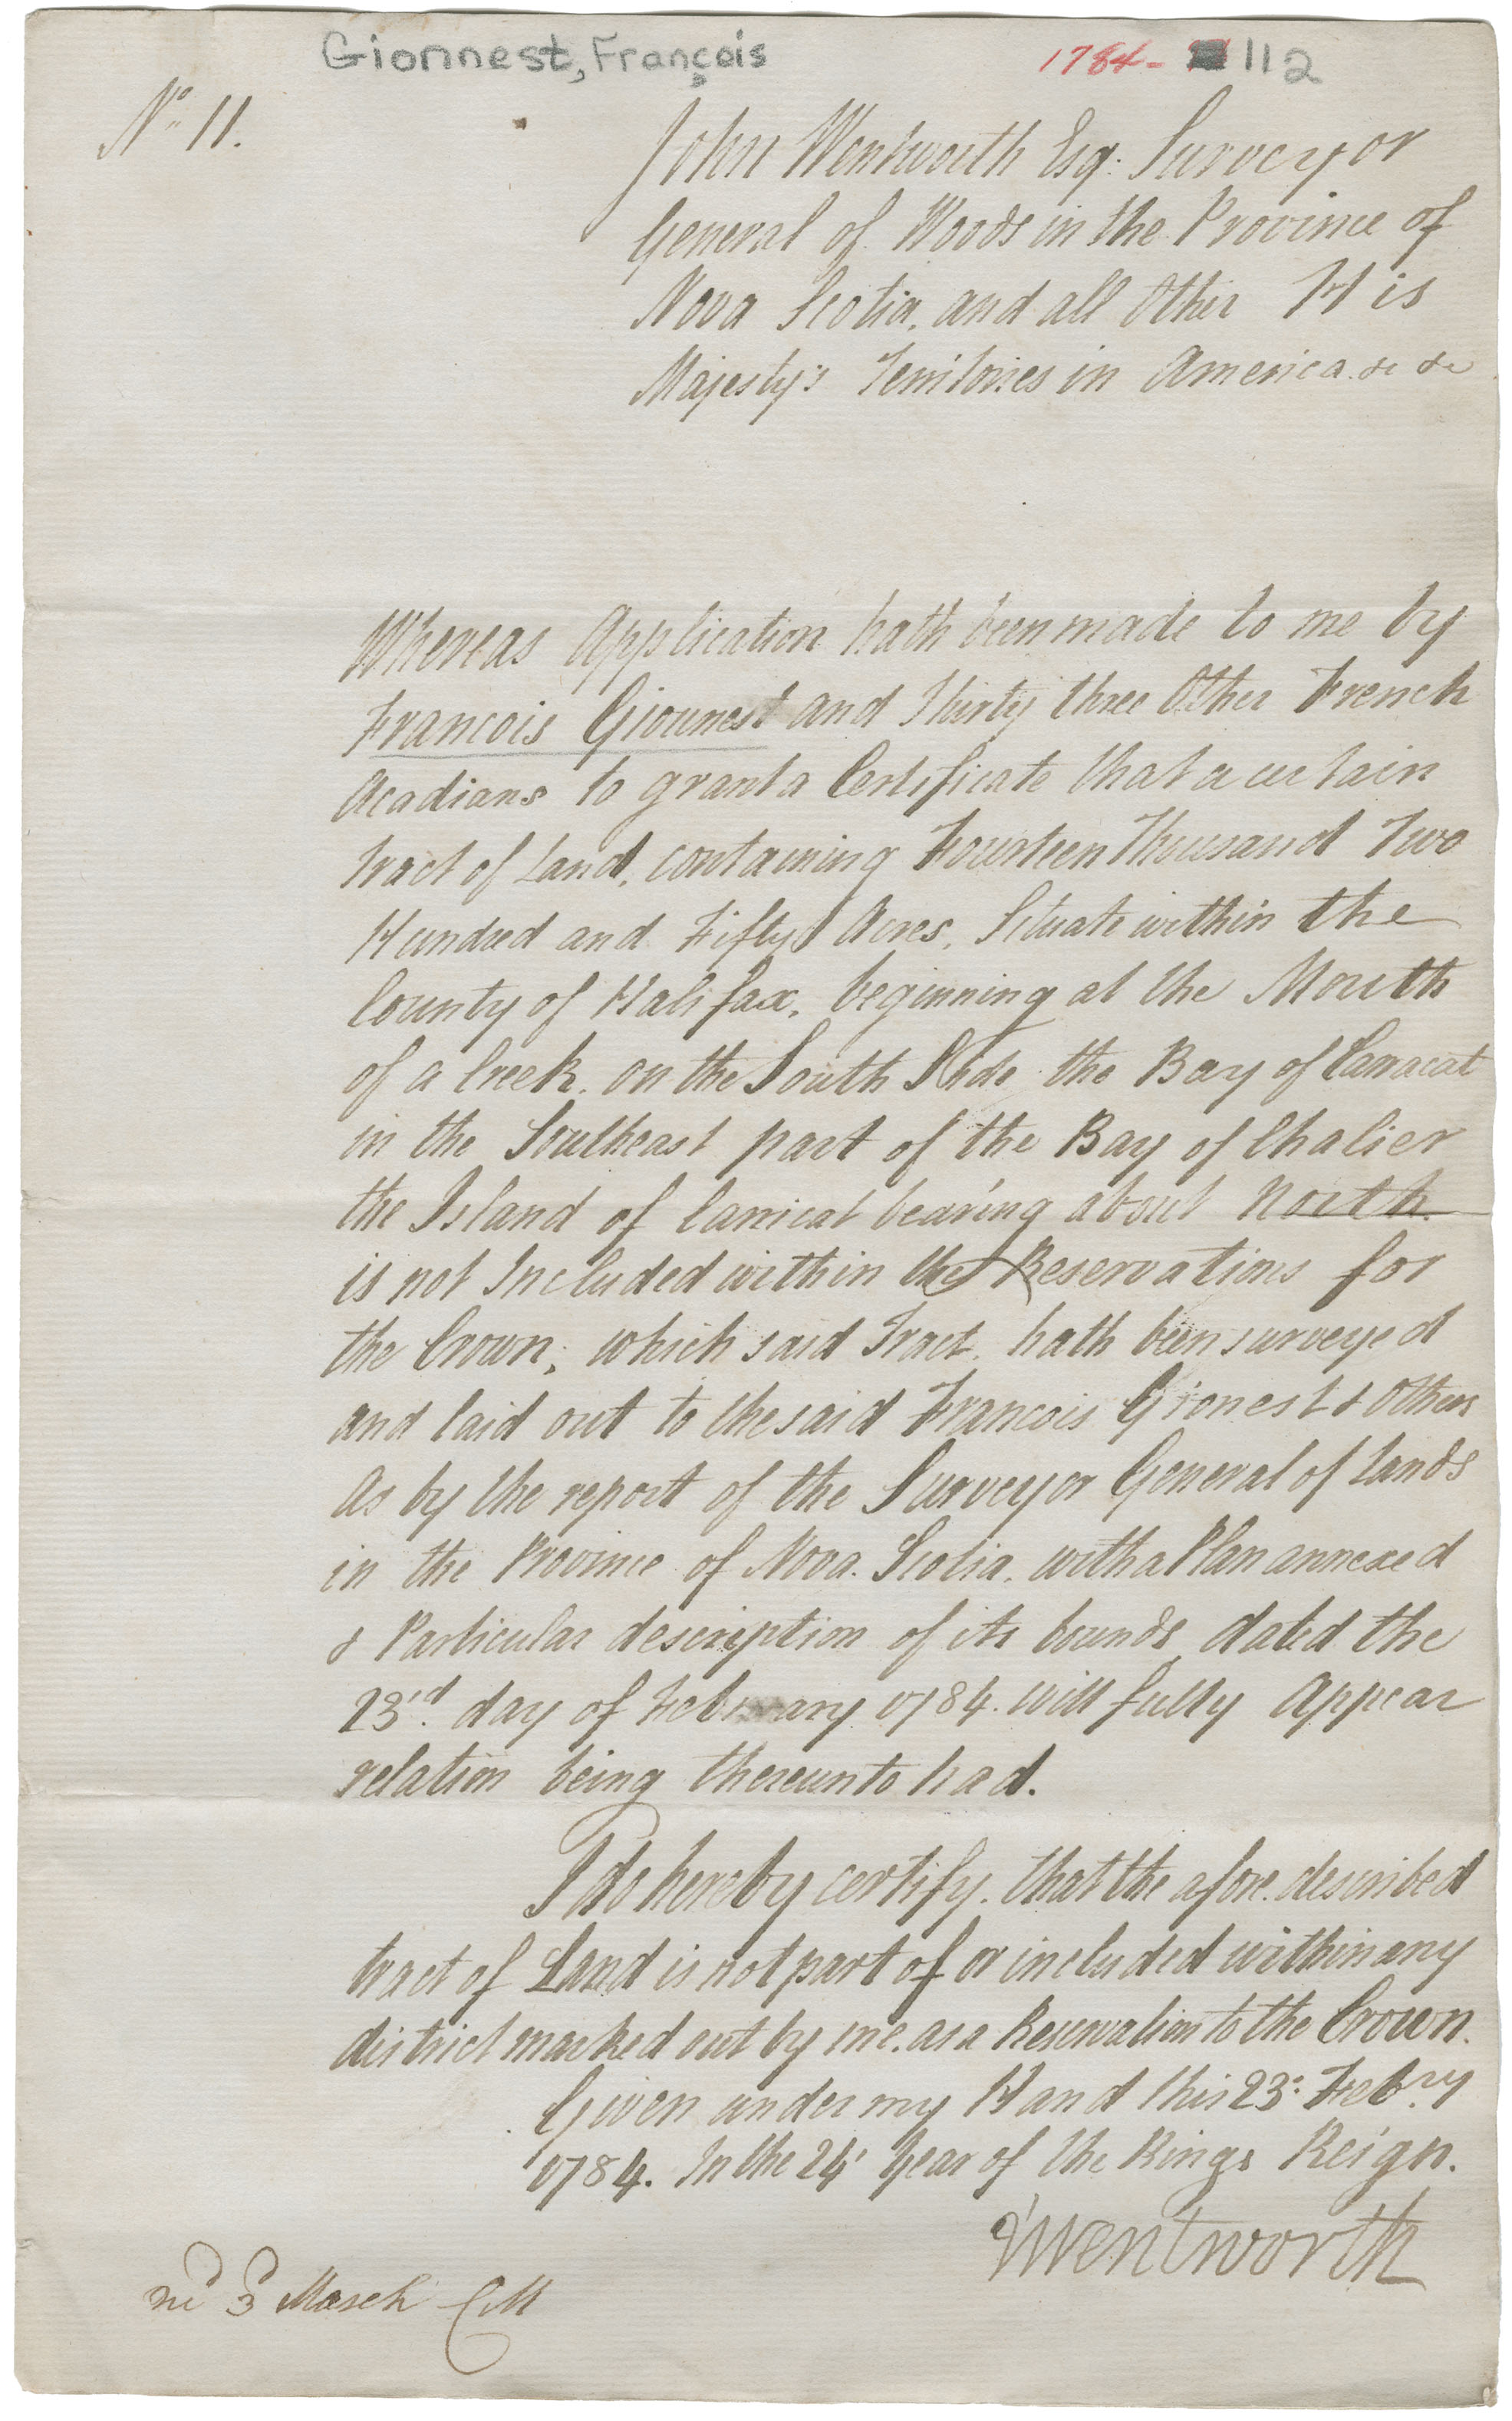 Gionnest, François
1784- 112
No. 11.
John Wentworth Esq: Surveyor
General of Woods in the Province of
Nova Scotia, and all Other His
Majesty's Territories in America. &c &c
Whereas Application hath been made to me by
Francois Giounest and Thirty three Other French
Acadians to grant a Certificate that a certain
tract of Land, containing Fourteen Thousand Two
Hundred and Fifty Acres, Situate within the
County of Halifax, beginning at the Mouth
of a Creek, on the South Side the Bay of Carracat
in the Southeast part of the Bay of Chalier
the Island of Carricat bearing about North
is not Included within the Reservations for
the Crown; which said Tract, hath been surveyed
and laid out to the said Francois Gionest & Others
As by the report of the Surveyor General of Lands
in the Province of Nova Scotia, with a Plan annexed
& Particular description of its bounds dated the
23'd day of February 1784. will fully Appear
relation being thereunto had.
I do hereby certify, that the afore described
tract of Land is not part of or included within any
district marked out by me, as a Reservation to the Crown.
Given under my Hand this 23: Feb:ry
1784. In the 24' Year of the Kings Reign.
J Wentworth
3d March CM